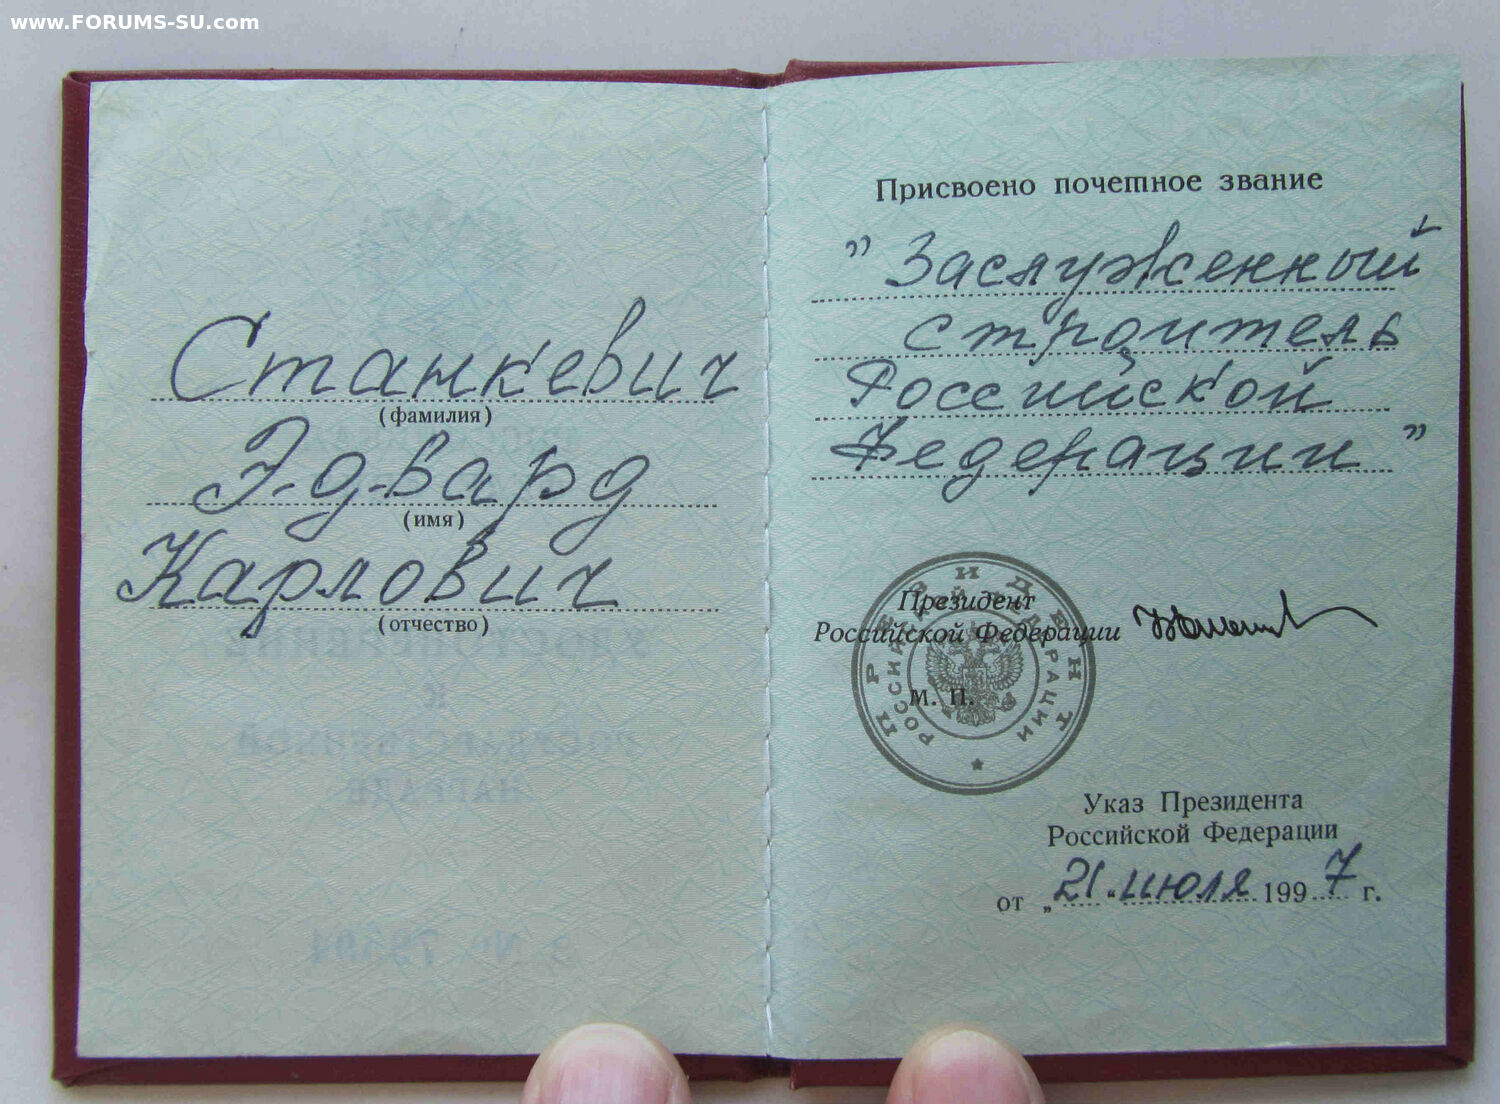 www.FORUMS-SU.com
Станкевич
(фамилия)
Эдвард
(имя)
Карлович
(отчество)
Присвоено почетное звание
"Заслуженный
строитель
Российской
Федерации"
Президент
Российской Федерации
М. П.
ПРЕЗИДЕНТ
РОССИЙСКОЙ ФЕДЕРАЦИИ
Указ Президента
Российской Федерации
от „21“ июля 1997 г.